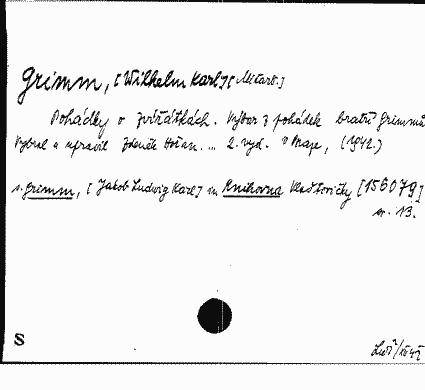 Grimm, [Wilhelm Karl] [
Pohádky o zvířátkách. Výbor z pohádek bratří Grimmů
Vybral a upravil Zdeněk ... 2. vyd. V Praze, (1942.)
s. Grimm, [Jakob Ludwig Karl] in Knihovna Vlaštovičky [156079]
sv. 13.
S